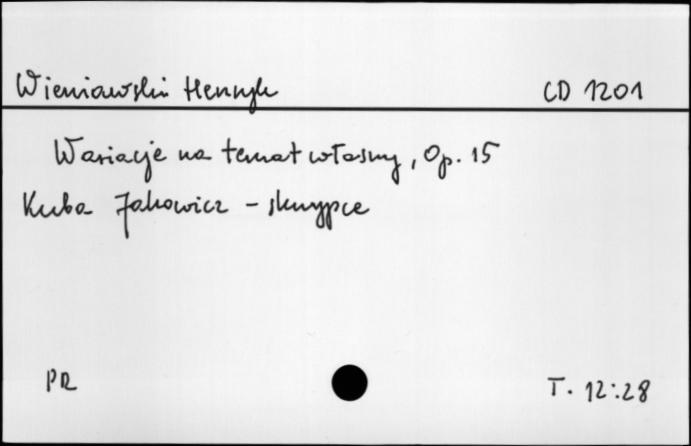 Wieniawski Henryk CD 1201
Wariacje na temat własny, Op. 15
Kuba Jakowicz - skrzypce
PR T. 12:28